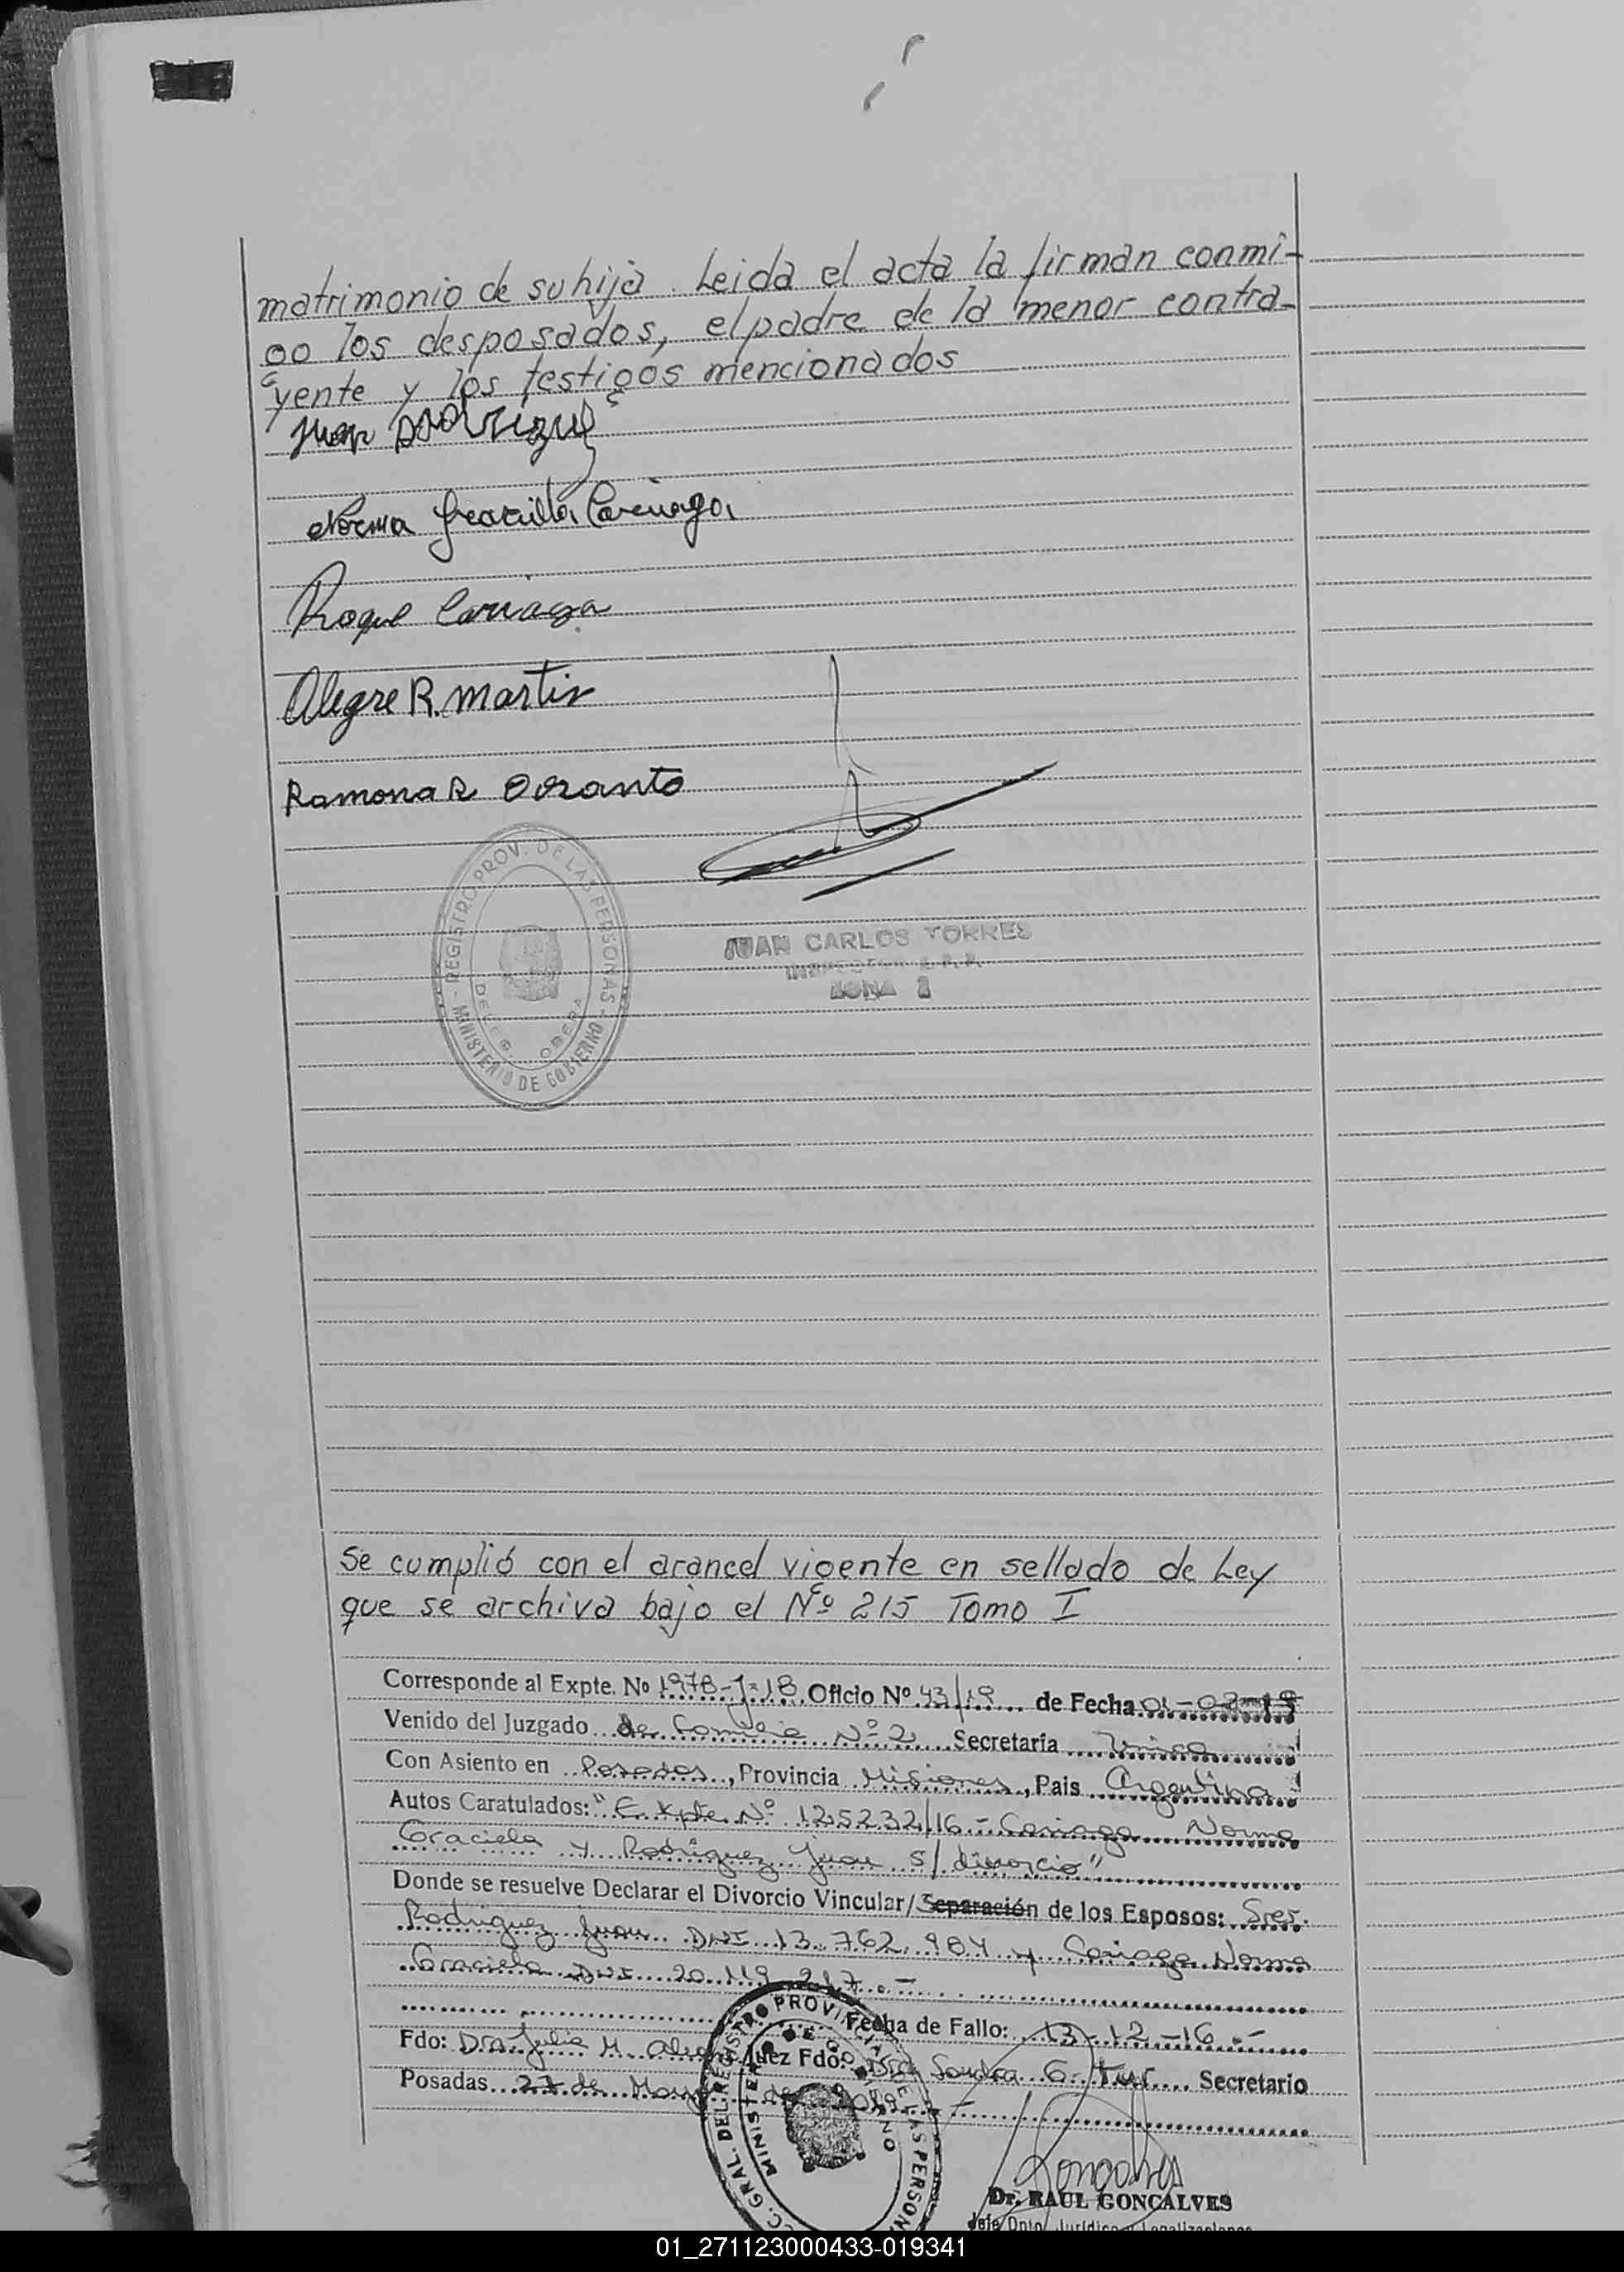 matrimonio de su hija. Leida el acta la firman conmi-
go los desposados, el padre de la menor contra-
yente y los testigos mencionados
Juan Rodriguez
Norma Graciela Cariaga
Roque Cariaga
Alegre R. Martin
Ramona R. Doranto
REGISTRO PROV. DE LAS PERSONAS
MINISTERIO DE GOBIERNO
OBERA
JUAN CARLOS TORRES
INSPECTOR R.P.P.
ZONA 1
Se cumplió con el arancel vigente en sellado de Ley
que se archiva bajo el Nº 215 Tomo I
Corresponde al Expte. No 1978-J-18 Oficio Nº 43/19 de Fecha 01-02-19
Venido del Juzgado de Familia Nº 2 Secretaria Unica
Con Asiento en Posadas, Provincia Misiones, Pais Argentina
Autos Caratulados: "Expte Nº 125232/16 - Cariaga Norma
Graciela y Rodriguez Juan s/ divorcio"
Donde se resuelve Declarar el Divorcio Vincular/Separación de los Esposos: Sres.
Rodriguez Juan DNI 13.762.984 y Cariaga Norma
Graciela DNI 20.119.217.-
Fecha de Fallo: 13-12-16.-
Fdo: Dra. Julia M. Juez Fdo: Dra Sandra G. Tur Secretario
Posadas 27 de de 2019.-
GRAL. DEL REGISTRO PROVINCIAL DE LAS PERSON
MINISTERIO DE GOBIERNO
Goncalves
Dr. RAUL GONCALVES
Jefe Dpto. Jurídico y Legalizaciones
01_271123000433-019341